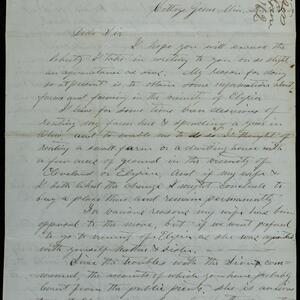 Cottage Grove Min.
Dear Sir
I hope you will excuse the
liberty I take in writing to you on so slight
an acquaintance as ours. My reason for doing
so at present is, to obtain some information about
farms and farming in the vicinity of Elyria
I have for some time been desirous of
renting my farm here & spending a year in
Ohio and to enable me to do so I thought of
renting a small farm or a dwelling house with
a few acres of ground in the vicinity of
Cleveland or Elyria. And if my wife &
I both liked the change I might conclude to
buy a place there and remain permanently
For various reasons my wife has been
opposed to the move, but if we went prefered
to go to vicinity of Elyria as she was acquainted
with yourself Mother & Sister.
Since the troubles with the Sioux com-
menced, the accounts of which you have probably
learnt from the public prints, she is anxious